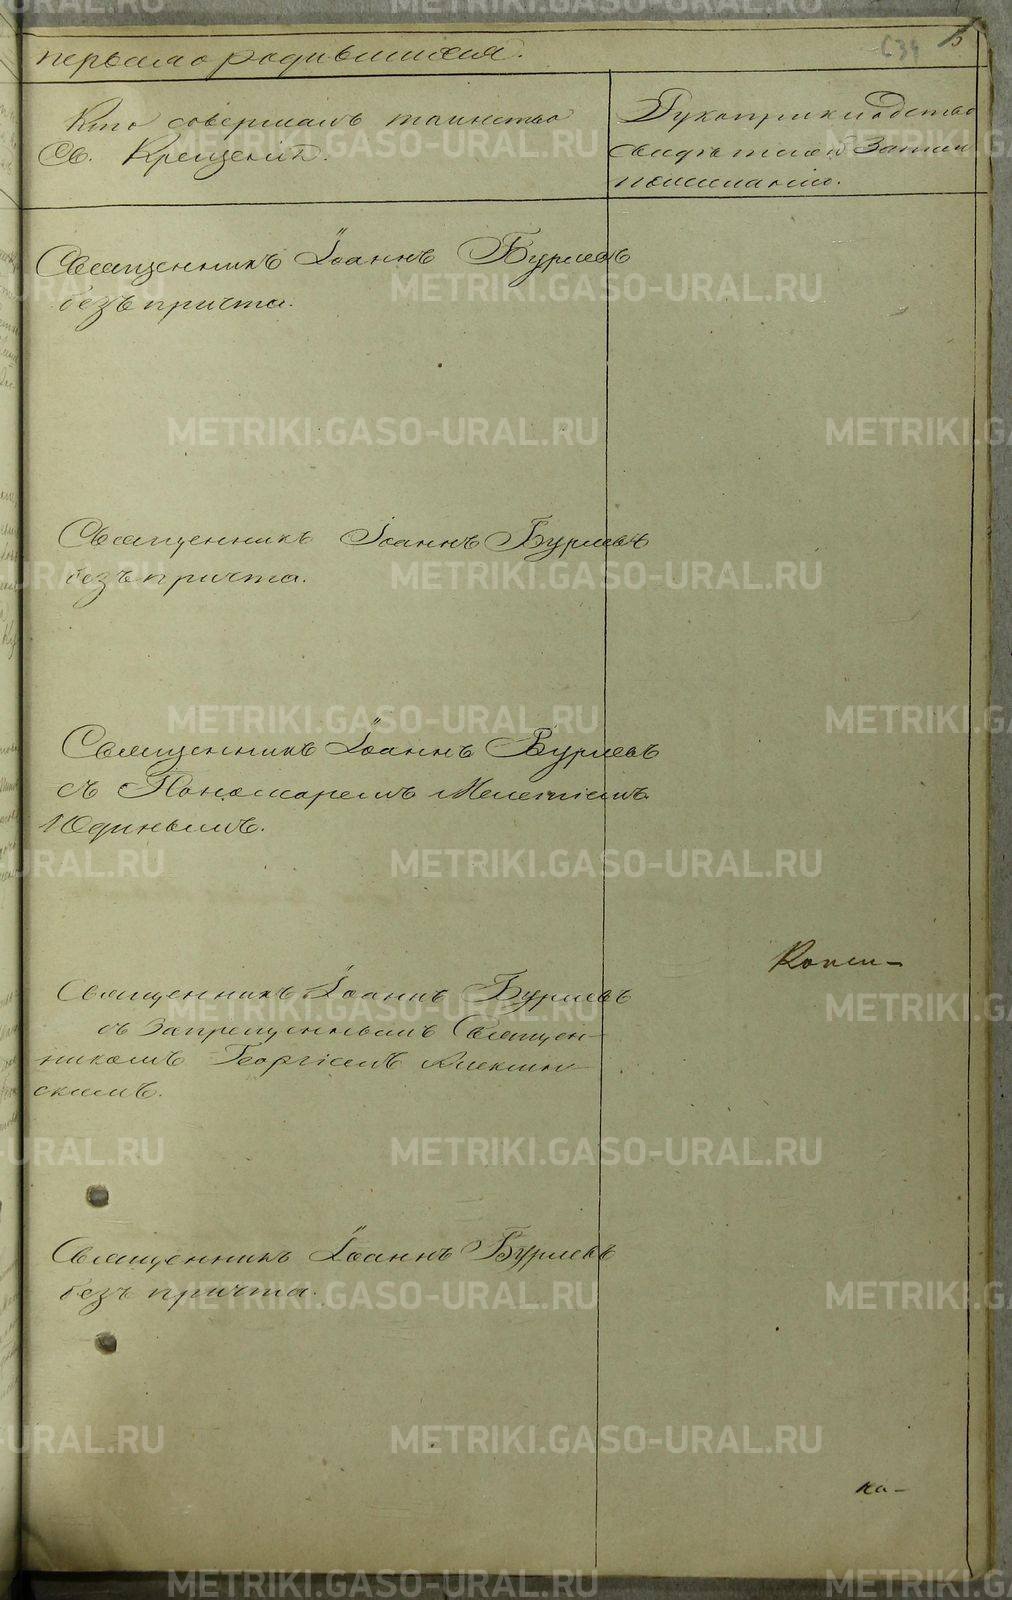 634
5
первая о родившихся.
Кто совершалъ таинство
Св. Крещенія.
Рукоприкладство
свидѣтелей записи
по желанію.
Священникъ Іоаннъ Бурлевъ
безъ причта.
Священникъ Іоаннъ Бурлевъ
безъ причта.
Священникъ Іоаннъ Бурлевъ
съ Пономаремъ Мелетіемъ
Юдинымъ.
Кон
Священникъ Іоаннъ Бурлевъ
съ запрещеннымъ Священ-
никомъ Георгіемъ
скимъ.
Священникъ Іоаннъ Бурлевъ
безъ причта.
ка-
METRIKI.GASO-URAL.RU